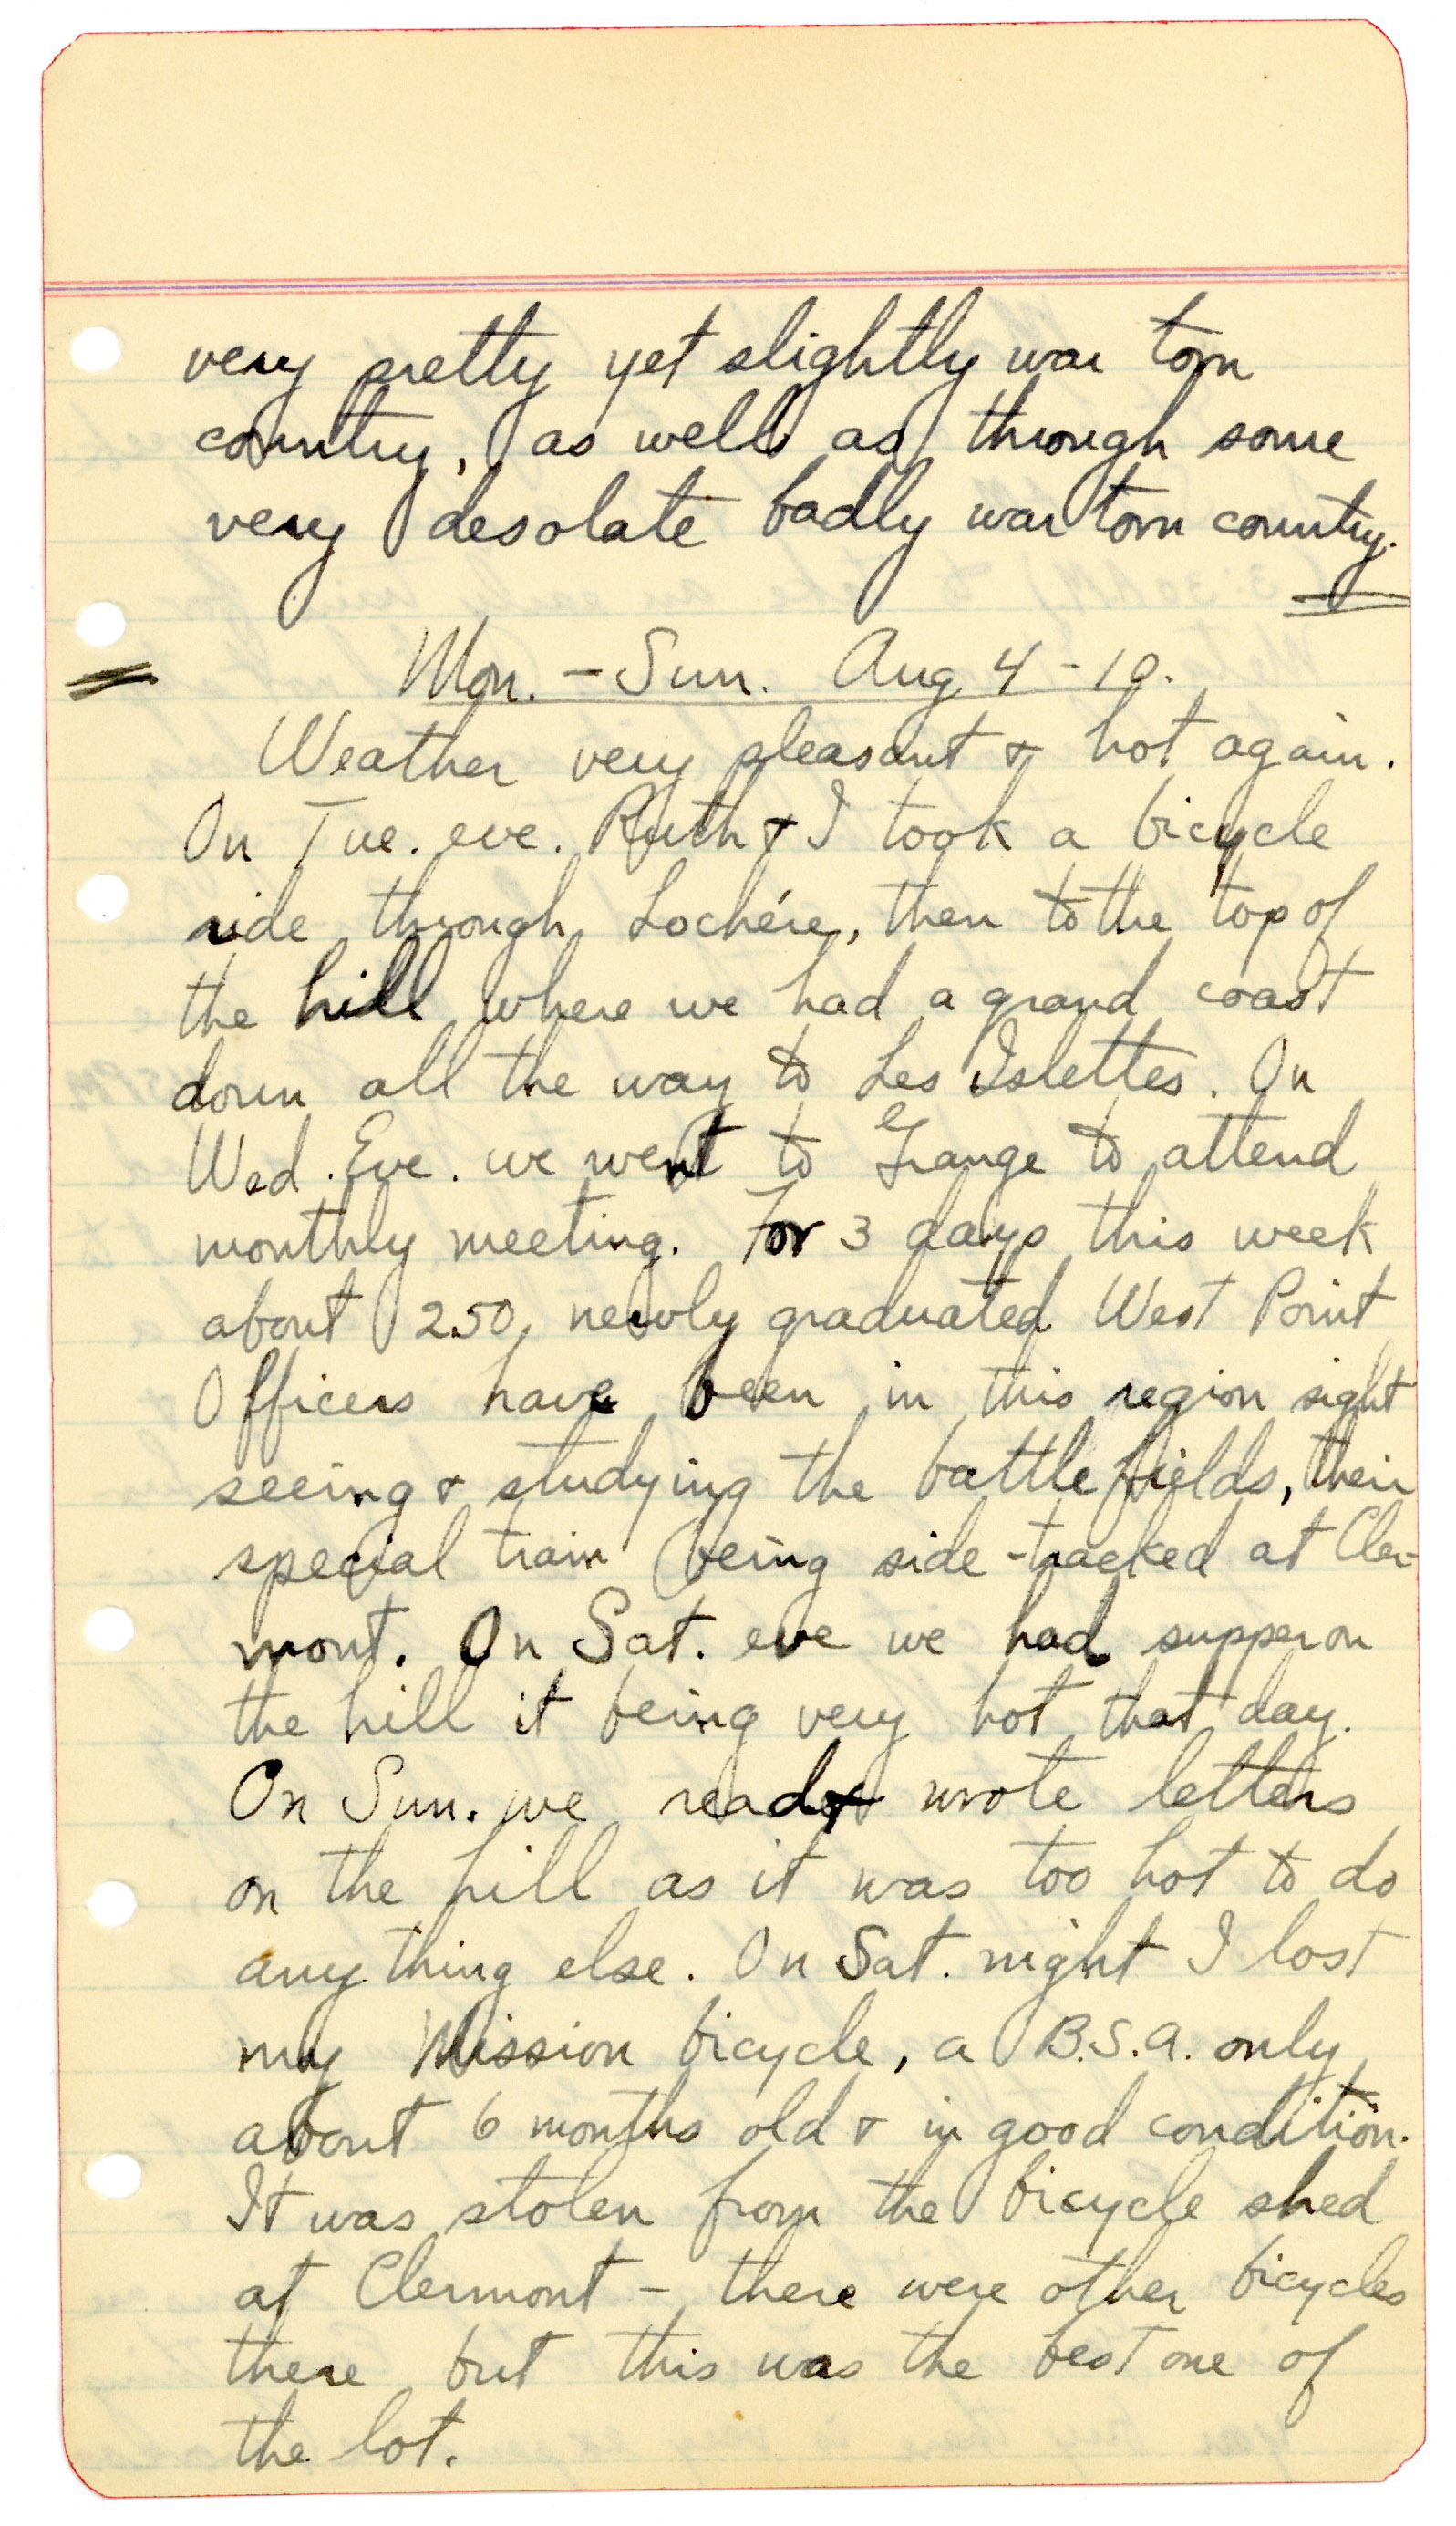 very pretty yet slightly war torn
country, as well as through some
very desolate badly war torn country.
Mon. - Sun. Aug 4 - 10.
Weather very pleasant & hot again.
On Tue. eve. Ruth & I took a bicycle
ride through Lochére, then to the top of
the hill where we had a grand coast
down all the way to Les Islettes. On
Wed. Eve. we went to Grange to attend
monthly meeting. For 3 days this week
about 250 newly graduated West Point
Officers have been in this region sight
seeing & studying the battle fields, their
special train being side-tracked at Cler-
mont. On Sat. eve we had supper on
the hill it being very hot that day.
On Sun. we read & wrote letters
on the hill as it was too hot to do
any thing else. On Sat. night I lost
my Mission bicycle, a B.S.A. only
about 6 months old & in good condition.
It was stolen from the bicycle shed
at Clermont - there were other bicycles
there but this was the best one of
the lot.